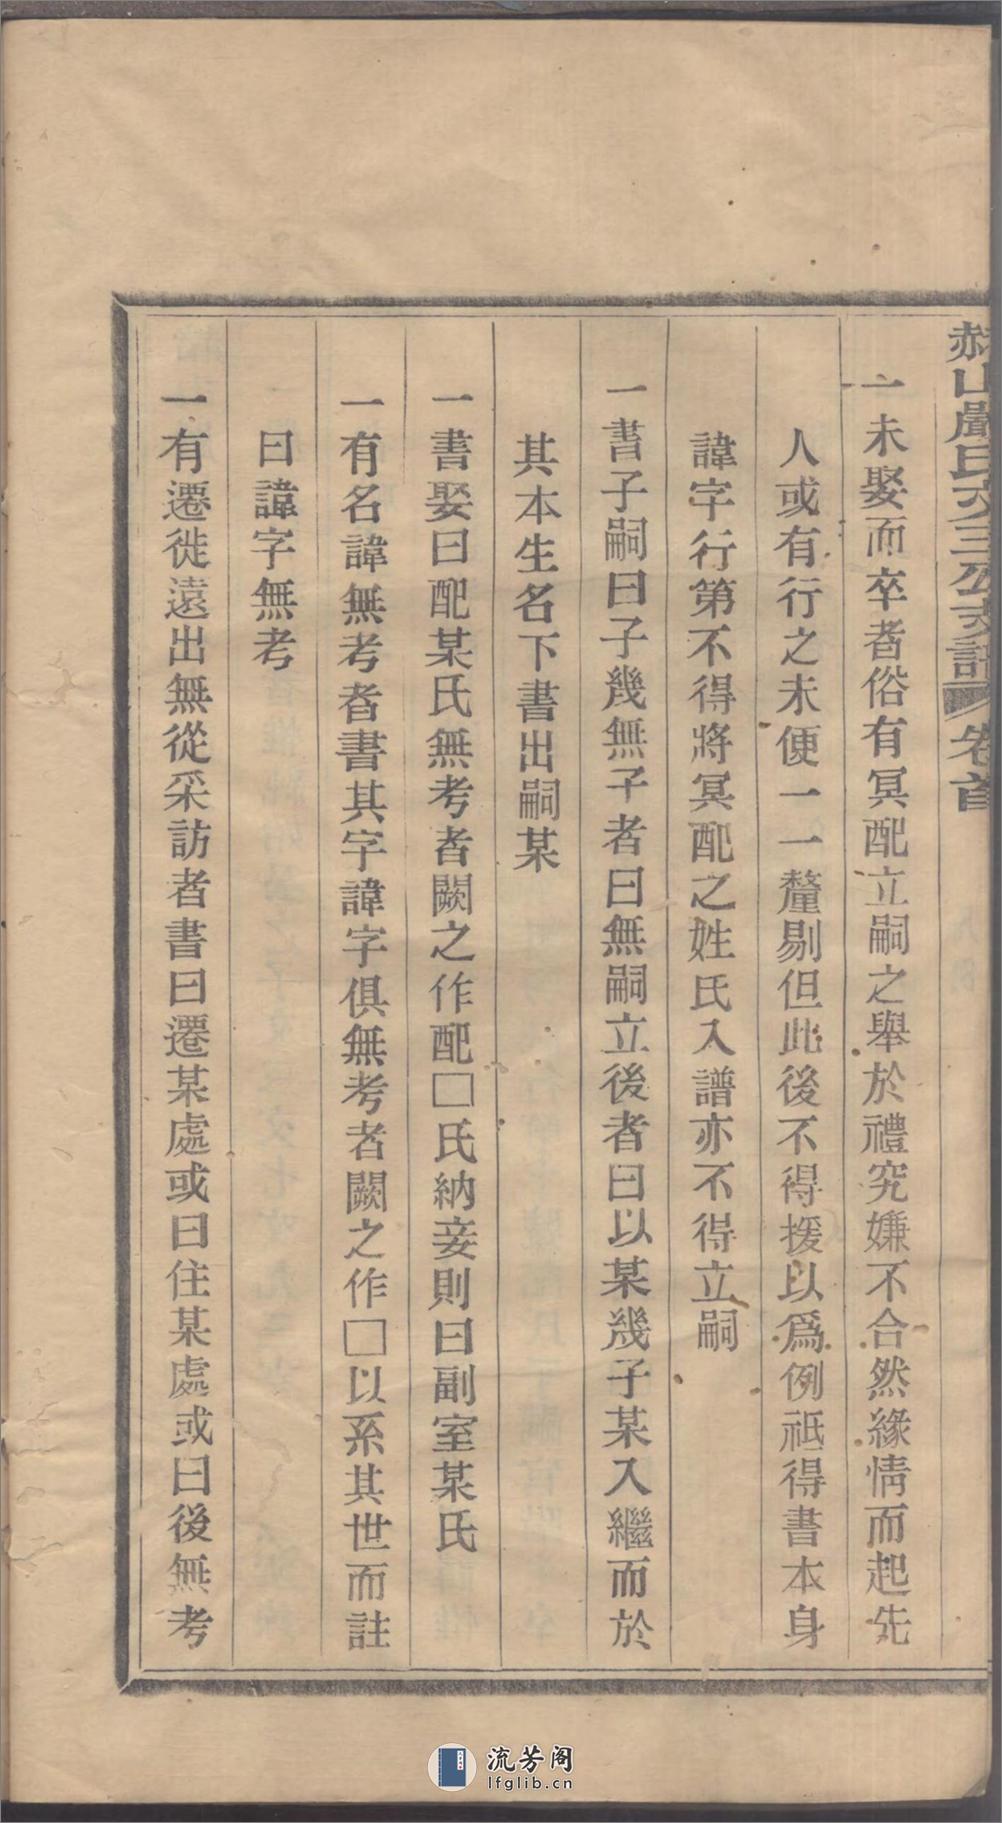 赤山嚴氏文三公支譜 卷首
一未娶而卒者俗有冥配立嗣之舉於禮究嫌不合然緣情而起先
人或有行之未便一一釐剔但此後不得援以爲例祗得書本身
諱字行第不得將冥配之姓氏入譜亦不得立嗣
一書子嗣曰子幾無子者曰無嗣立後者曰以某幾子某入繼而於
其本生名下書出嗣某
一書娶曰配某氏無考者闕之作配□氏納妾則曰副室某氏
一有名諱無考者書其字諱字俱無考者闕之作□以系其世而註
曰諱字無考
一有遷徙遠出無從采訪者書曰遷某處或曰住某處或曰後無考
流芳阁
lfglib.cn